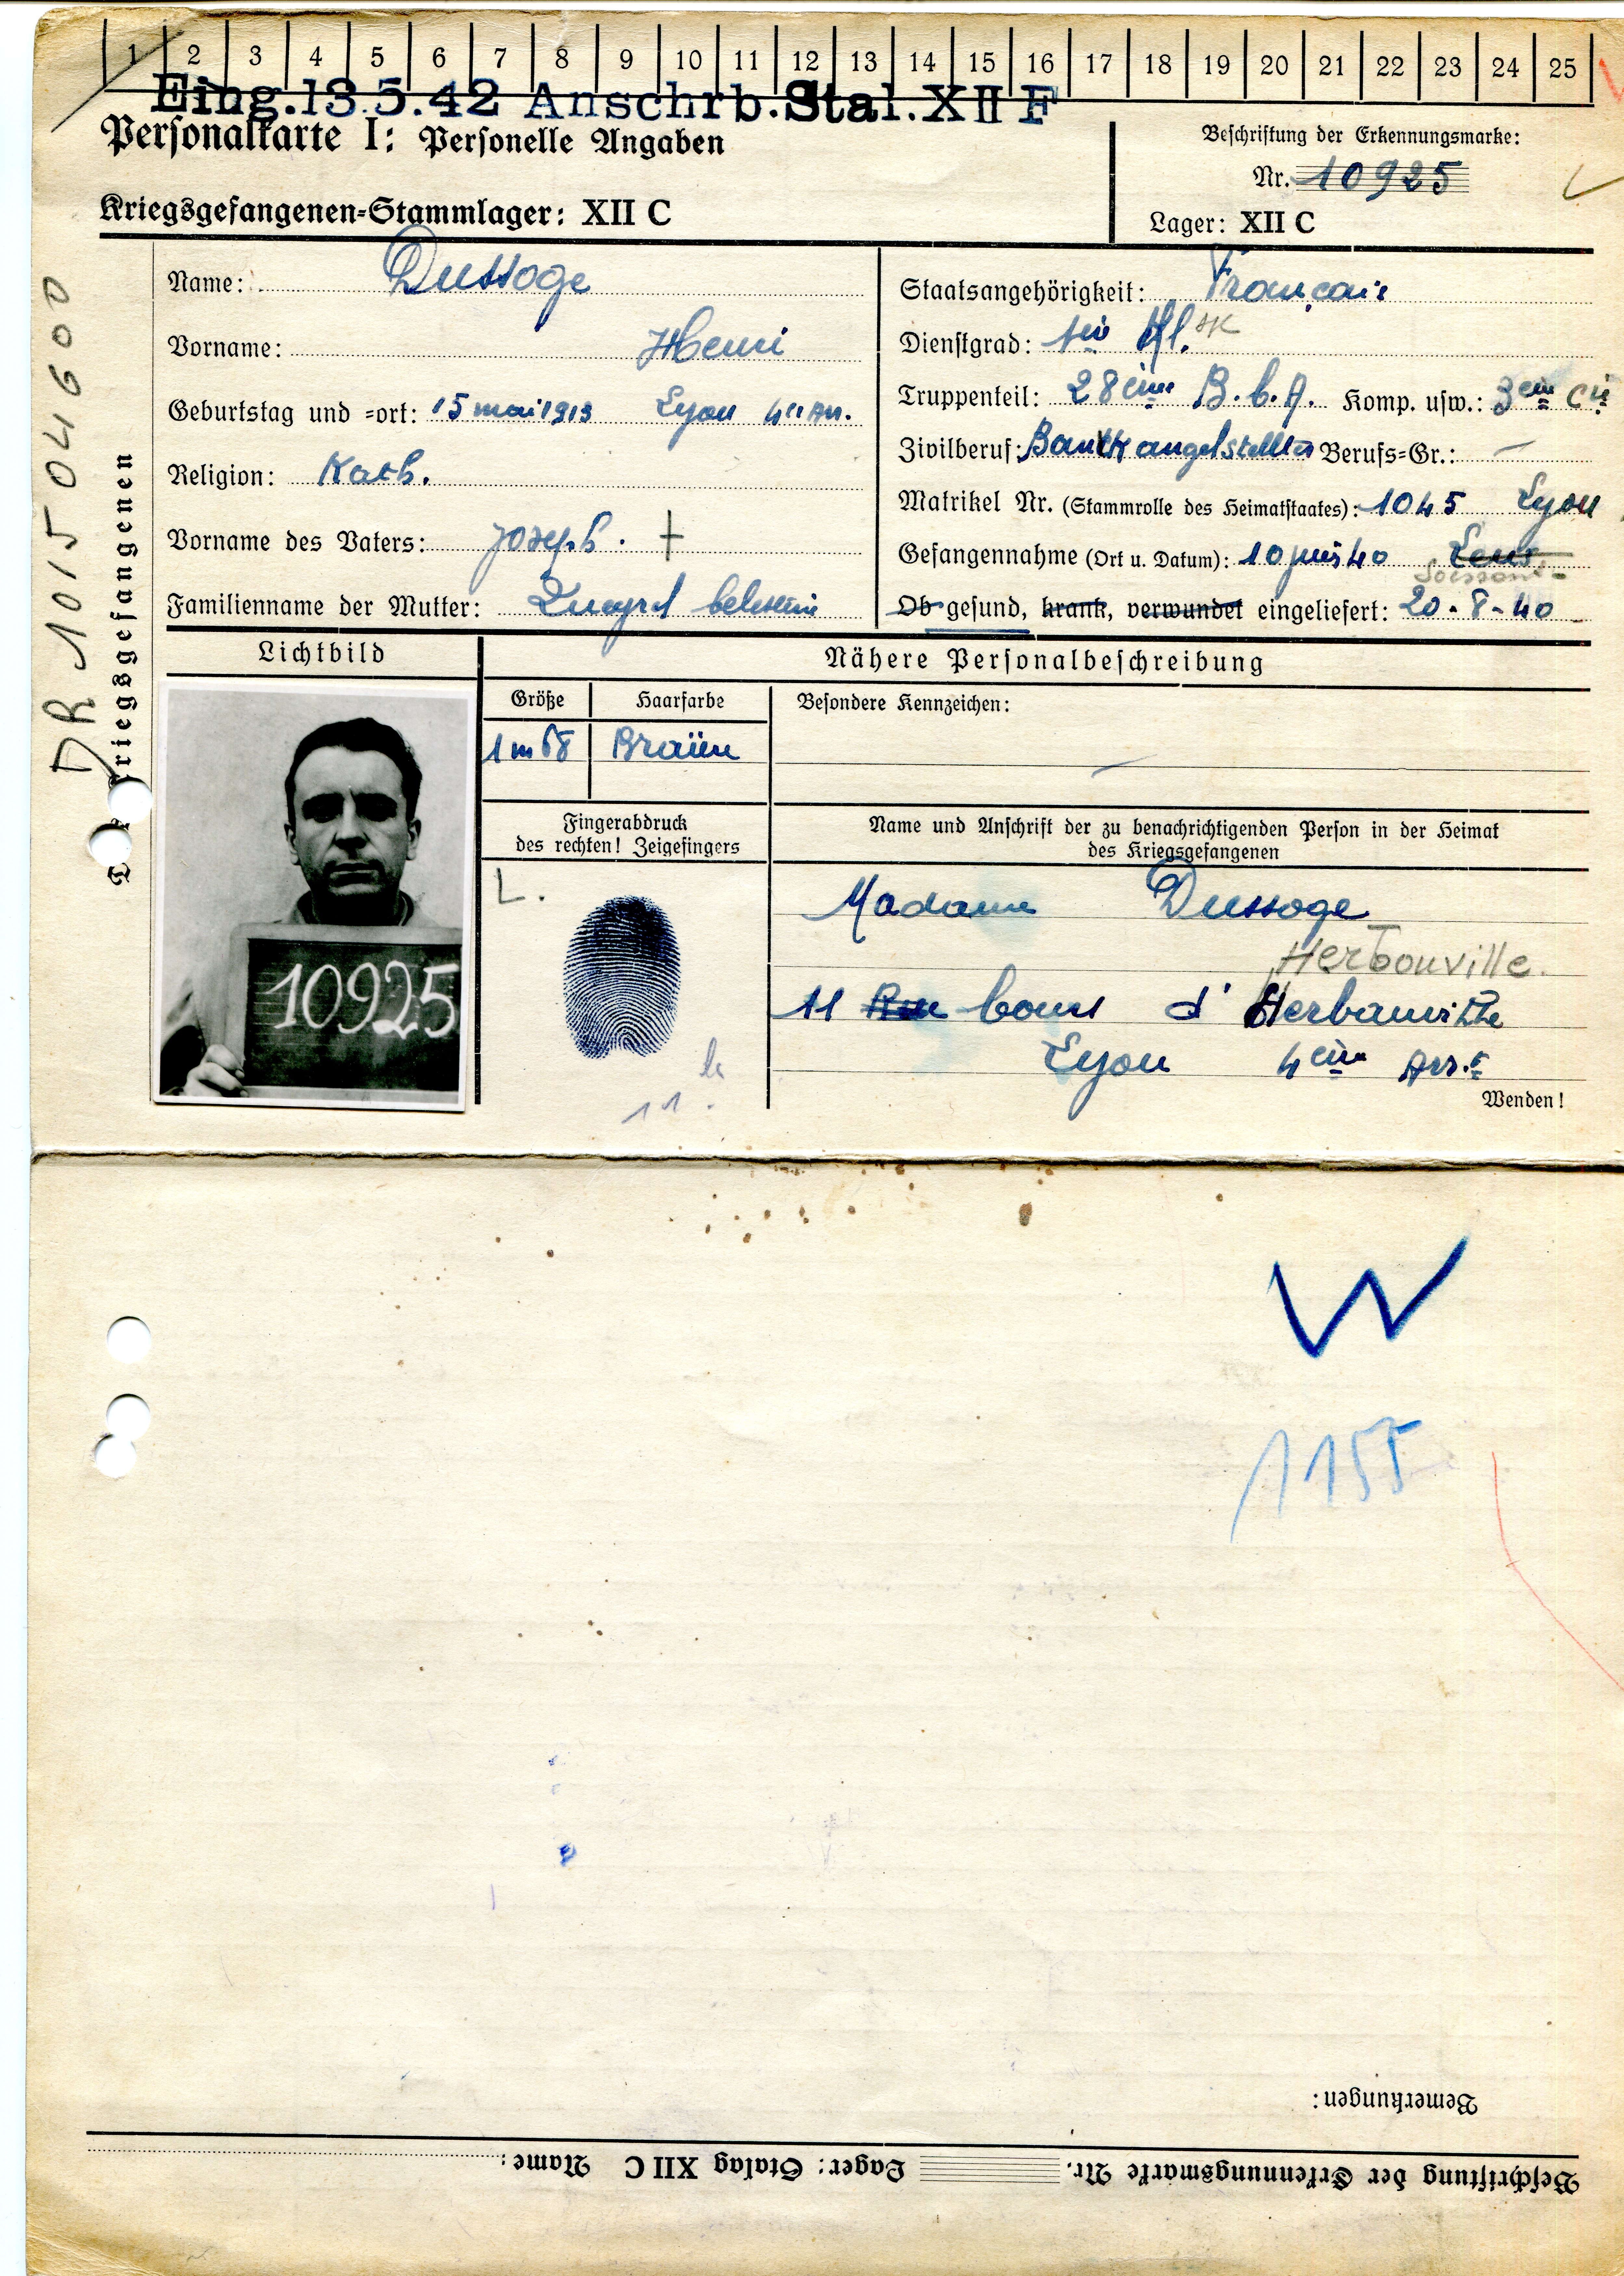 1 2 3 4 5 6 7 8 9 10 11 12 13 14 15 16 17 18 19 20 21 22 23 24 25
Eing.13.5.42 Anschrb.Stal.XII F
Personalkarte I: Personelle Angaben
Beschriftung der Erkennungsmarke:
Nr. 10925
Kriegsgefangenen-Stammlager: XII C
Lager: XII C
DR 1015 04600
riegsgefangenen
Name: Dussoge
Vorname: Henri
Geburtstag und =ort: 15 mai 1913 Lyon 4e Arr.
Religion: Kath.
Vorname des Vaters: Joseph. +
Familienname der Mutter:
Staatsangehörigkeit: Français
Dienstgrad: Kl.
Truppenteil: 28ème B.C.A. Komp. usw.: 3em Cie
Zivilberuf: Bankangestellter Berufs=Gr.: —
Matrikel Nr. (Stammrolle des Heimatstaates): 1045 Lyon
Gefangennahme (Ort u. Datum): 10 juin 40 Lens
Soissons
Ob gesund, krank, verwundet eingeliefert: 20-8-40
Lichtbild
Nähere Personalbeschreibung
Größe Haarfarbe Besondere Kennzeichen:
1m68 Braün
Fingerabdruck
des rechten! Zeigefingers
Name und Anschrift der zu benachrichtigenden Person in der Heimat
des Kriegsgefangenen
L.
10925
Madame Dussoge
Herbouville.
11 Rue Cours d'Herbouville
Lyon 4ème Arr.t
Wenden!
W
1155
Bemerkungen:
Beschriftung der Erkennungsmarke Nr. Lager: Stalag XII C Name: